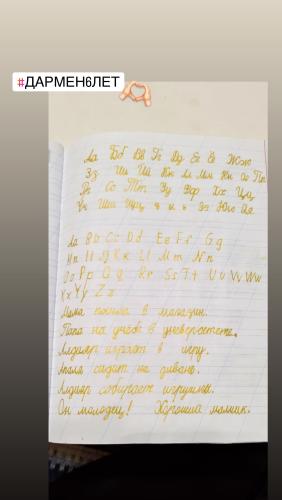 #ДАРМЕН6ЛЕТ
Аа Бб Вв Гг Дд Ее Ёё Жж
Зз Ии Йй Кк Лл Мм Нн Оо Пп
Рр Сс Тт Уу Фф Хх Цц
Чч Шш Щщ ъ ы ь Ээ Юю Яя
Aa Bb Cc Dd Ee Ff Gg
Hh Ii Jj Kk Ll Mm Nn
Oo Pp Qq Rr Ss Tt Uu Vv Ww
Xx Yy Zz
Мама пошла в магазин.
Папа на учёбе в университете.
Алдияр играет в игру.
сидит на диване.
Алдияр собирает игрушки.
Он молодец! Хороший мальчик.